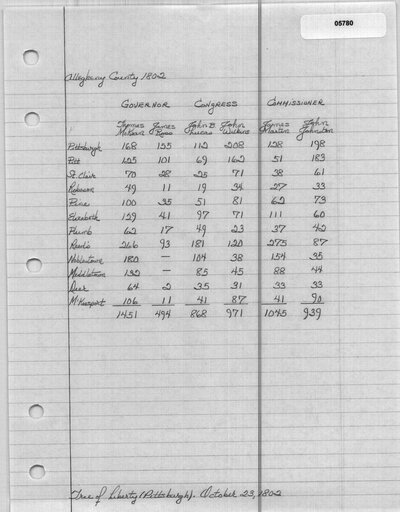 05780
Allegheny County 1802
GOVERNOR CONGRESS COMMISSIONER
Thomas McKean James Ross John B Lucas John Wilkins James Martin John Johnston
Pittsburgh 168 155 112 208 128 198
Pitt 125 101 69 162 51 183
St. Clair 70 28 25 71 38 61
Robinson 49 11 19 34 27 33
Pine 100 35 51 81 62 73
Elizabeth 129 41 97 71 111 60
Plumb 62 17 49 23 37 42
Read's 266 93 181 120 275 87
Noblestown 180 — 104 38 154 35
Middletown 132 — 85 45 88 44
Deer 64 2 35 31 33 33
McKeesport 106 11 41 87 41 90
1451 494 868 971 1045 939
Tree of Liberty (Pittsburgh). October 23, 1802